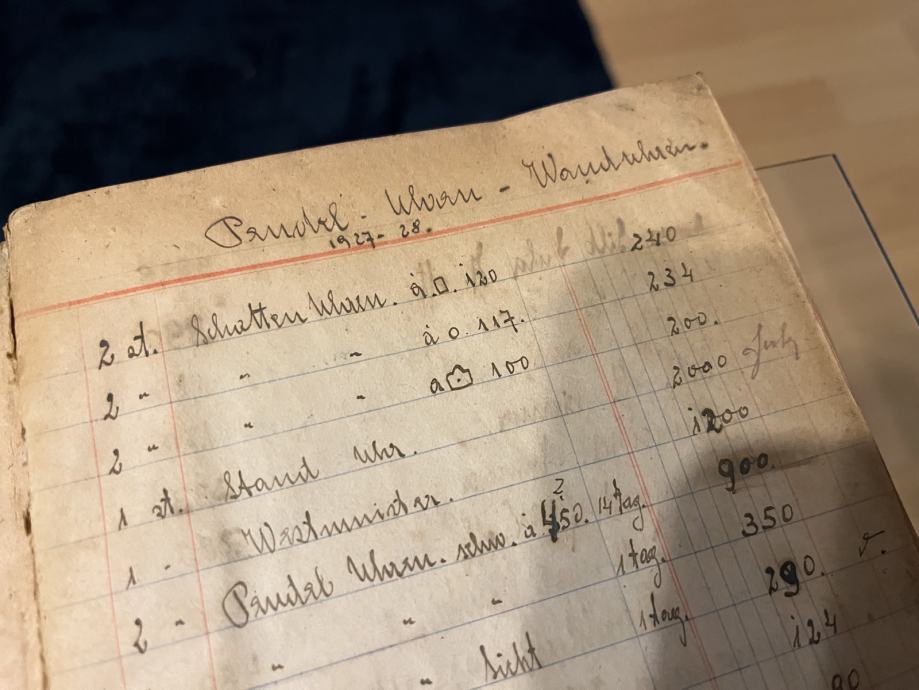 Pendel-Uhren-Wanduhren.
1927-28.
2 st. Schatten Uhren. à.□. 120 240
2 " " " à o. 117. 234
2 " " " a 100 200.
1 st. Stand Uhr. 2000
1 " Westminster. 1200
2 " Pendel Uhren. schw. à 450. 14 tag. 900
" " " 1 tag. 350
" " Sicht 1 tag. 290.
124